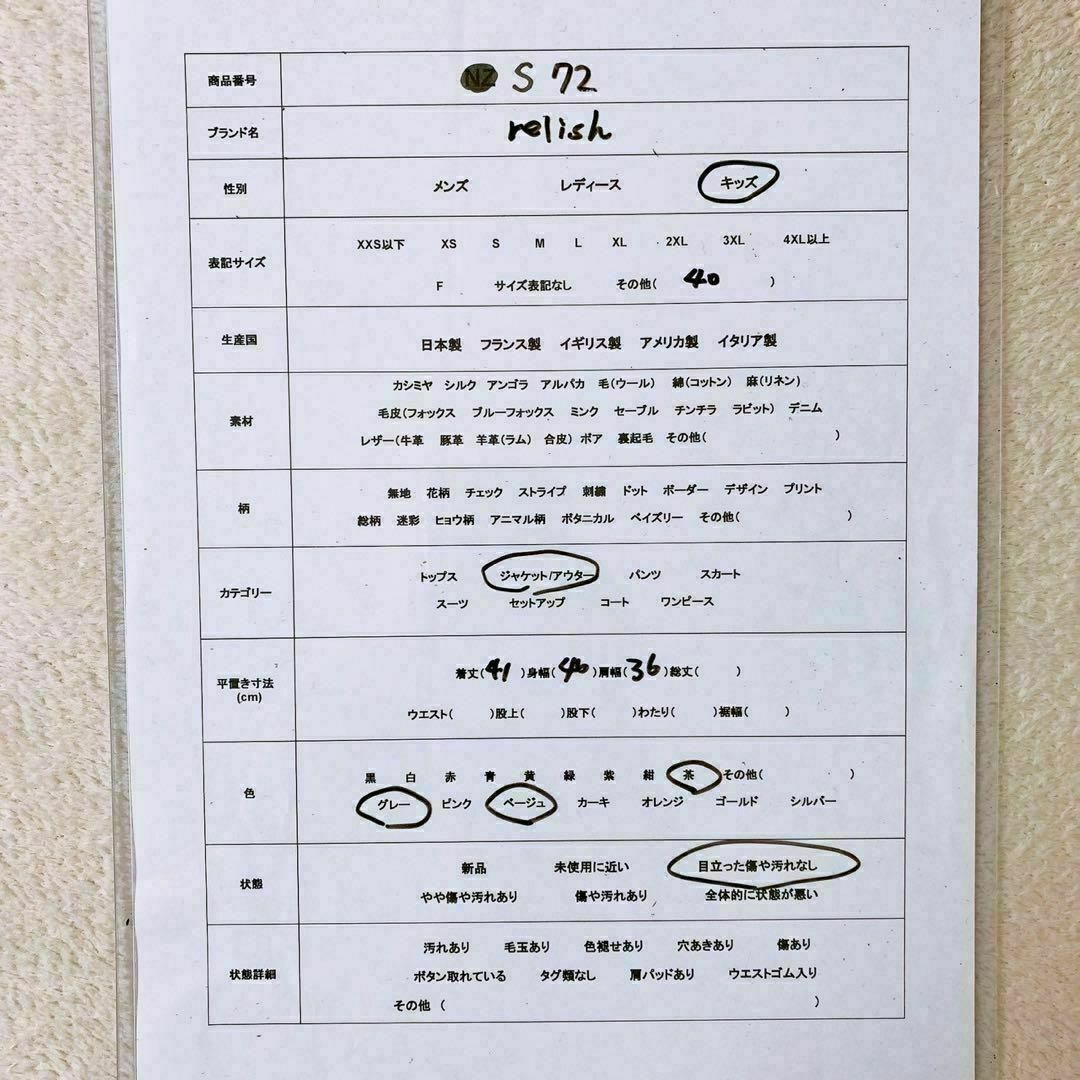 商品番号 NZ S 72
ブランド名 relish
性別 メンズ レディース キッズ
表記サイズ
XXS以下 XS S M L XL 2XL 3XL 4XL以上
F サイズ表記なし その他( 40 )
生産国 日本製 フランス製 イギリス製 アメリカ製 イタリア製
素材
カシミヤ シルク アンゴラ アルパカ 毛(ウール) 綿(コットン) 麻(リネン)
毛皮(フォックス ブルーフォックス ミンク セーブル チンチラ ラビット) デニム
レザー(牛革 豚革 羊革(ラム) 合皮) ボア 裏起毛 その他( )
柄
無地 花柄 チェック ストライプ 刺繍 ドット ボーダー デザイン プリント
総柄 迷彩 ヒョウ柄 アニマル柄 ボタニカル ペイズリー その他( )
カテゴリー
トップス ジャケット/アウター パンツ スカート
スーツ セットアップ コート ワンピース
平置き寸法
(cm)
着丈(41)身幅(40)肩幅(36)総丈( )
ウエスト( )股上( )股下( )わたり( )裾幅( )
色
黒 白 赤 青 黄 緑 紫 紺 茶 その他( )
グレー ピンク ベージュ カーキ オレンジ ゴールド シルバー
状態
新品 未使用に近い 目立った傷や汚れなし
やや傷や汚れあり 傷や汚れあり 全体的に状態が悪い
状態詳細
汚れあり 毛玉あり 色褪せあり 穴あきあり 傷あり
ボタン取れている タグ類なし 肩パッドあり ウエストゴム入り
その他 ( )